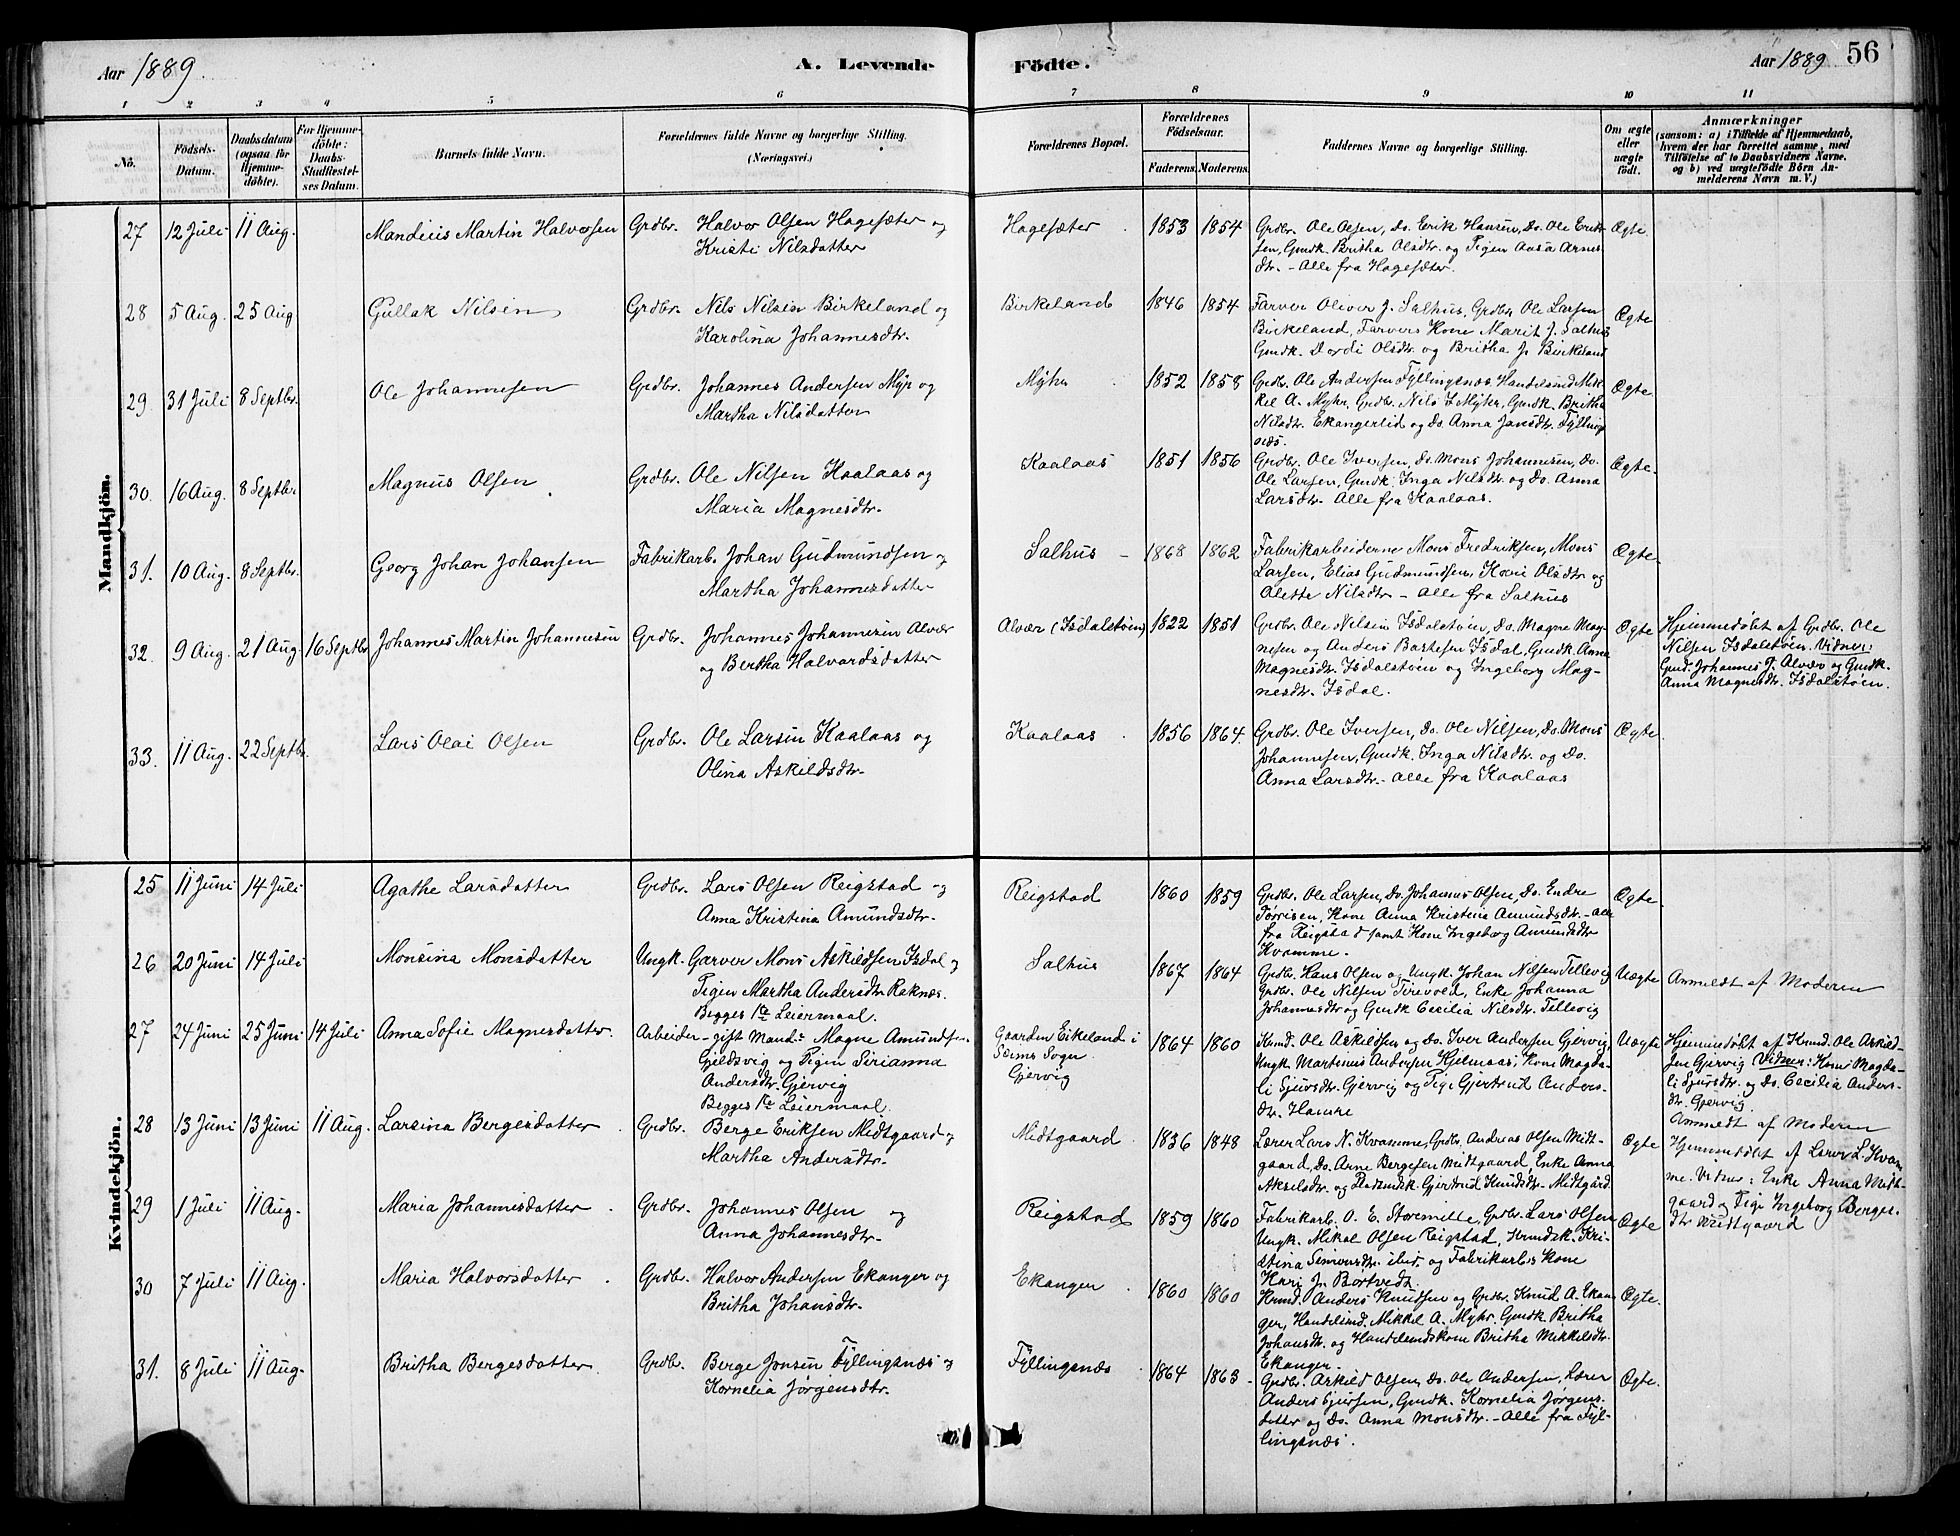 Aar 1889.
A. Levende Födte.
Aar 1889
56
1 2 3 4 5 6 7 8 9 10 11
No.
Födsels-Datum.
Daabsdatum (ogsaa for Hjemmedöbte).
For Hjemmedöbte: Daabs-Stadfæstelses Datum.
Barnets fulde Navn.
Forældrenes fulde Navne og borgerlige Stilling.
(Næringsvei.)
Forældrenes Bopæl.
Forældrenes Födselsaar.
Faderens. Moderens.
Faddernes Navne og borgerlige Stilling.
Om ægte eller uægte født.
Anmærkninger
(saasom: a) i Tilfælde af Hjemmedaab,
hvem der har forrettet samme, med
Tilföielse af to Daabsvidners Navne.
og b) ved uægtefödte Börn An-
melderens Navn m. V.)
Mandkjön.
27 12 Juli 11 Aug. Mandius Martin Halvorsen Grdbr. Halvor Olsen Hagesæter og
Kristi Nilsdatter
Hagesæter 1853 1854 Grdbr. Ole Olsen, Do. Erik Hansen, Do. Ole Erik-
sen, Gmdk. Britha Olsdtr. og Pigen Aasa Arnes-
dtr. - Alle fra Hagesæter.
Ægte.
28 5 Aug. 25 Aug Gullak Nilsen Grdbr. Nils Nilsen Birkeland og
Karolina Johannesdtr.
Birkeland 1846 1854 Farver Oliver J. Salhus, Grdbr. Ole Larsen
Birkeland, Farvers Kone Marit J. Salhus
Gmdk. Dordi Olsdtr. og Britha J. Birkeland
Ægte
29 31 Juli 8 Septbr. Ole Johannesen Grdbr. Johannes Andersen Myhr og
Martha Nilsdatter
Myhr 1852 1858 Grdbr. Ole Andersen Fyllingsnæs, Handelsmd. Mik-
kel A. Myhr, Grdbr. Nils J. Myhr, Gmdk. Britha
Nilsdtr. Ekangerlid og Do. Anna Jansdtr. Fyllings-
næs.
Ægte
30. 16 Aug. 8 Septbr. Magnus Olsen Grdbr. Ole Nilsen Kaalaas og
Maria Magnesdtr.
Kaalaas 1851 1856 Grdbr. Ole Iversen, Do. Mons Johannesen, Do.
Ole Larsen, Gmdk. Inga Nilsdtr. og Do. Anna
Larsdtr. - Alle fra Kaalaas.
Ægte.
31. 10 Aug. 8 Septbr. Georg Johan Johansen Fabrikarb. Johan Gudmundsen og
Martha Johannesdatter
Salhus 1868 1862 Fabrikarbeiderne Mons Fredriksen, Mons
Larsen, Elias Gudmundsen, Kone Olsdtr og
Alette Nilsdtr - Alle fra Salhus
Ægte
32. 9 Aug. 21 Aug 16 Septbr. Johannes Martin Johannesen Grdbr. Johannes Johannesen Alvær
og Bertha Halvordsdatter
Alvær (Isdalstøen) 1822 1851 Grdbr. Ole Nilsen Isdalstøen, Do. Magne Mag-
nesen og Anders Bastesen Isdal, Gmdk. Anna
Magnesdtr. Isdalstøen og Ingeborg Mag-
nesdtr. Isdal.
Ægte
Hjemmedøbt af Grdbr. Ole
Nilsen Isdalstøen. Vidner:
Gmd. Johannes J. Alvær og Gmdk.
Anna Magnesdtr. Isdalstøen.
33. 11 Aug. 22 Septbr. Lars Olai Olsen Grdbr. Ole Larsen Kaalaas og
Olina Askildsdtr.
Kaalaas 1856 1864. Grdbr. Ole Iversen, Do. Ole Nilsen, Do. Mons
Johannesen, Gmdk. Inga Nilsdtr. og Do.
Anna Larsdtr. - alle fra Kaalaas
Ægte.
Kvindekjön.
25 11 Juni 14 Juli Agathe Larsdatter Grdbr. Lars Olsen Reigstad og
Anna Kristina Amundsdtr.
Reigstad 1860 1859 Grdbr. Ole Larsen, Do. Johannes Olsen, Do. Endre
Tørrisen, Kone Anna Kristina Amundsdtr. - alle
fra Reigstad samt Kone Ingeborg Amundsdtr
Kvamme.
Ægte.
26 20 Juni 14 Juli Monsina Monsdatter Ungk. Garver Mons Askildsen Isdal og
Pigen Martha Andersdtr. Raknæs.
Begges 1ste Leiermaal.
Salhus 1867 1864 Grdbr. Hans Olsen og Ungk. Johan Nilsen Tellevig
Grdbr. Ole Nilsen Tirevold, Enke Johanna
Johannesdtr og Gmdk Cecilia Nilsdtr. Tellevig
Uægte
Anmeldt af Moderen
27 24 Juni 25 Juni 14 Juli Anna Sofie Magnesdatter. Arbeider - gift Mand - Magne Amundsen
Gjeldsvig og Pigen Sirianna
Andersdtr. Gjervig
Begges 1ste Leiermaal.
Gaarden Eikeland i
Sæims Sogn
Gjervig
1864 1860 Kmd. Ole Askildsen og Do. Iver Andersen Gjervig,
Ungk. Martinius Andersen Hjelmaas, Kone Magda-
li Sjursdtr. Gjervig og Pige Gjertrud Anders-
dtr. Hamre
Uægte
Hjemmedøbt af Kmd. Ole Askild-
sen Gjervig Vidner: Kone Magda-
li Sjursdtr. og Do. Cecilia Anders-
dtr. Gjervig.
Anmeldt af Moderen
28 13 Juni 13 Juni 11 Aug. Larsina Bergesdatter Grdbr. Berge Eriksen Midtgaard og
Martha Andersdtr.
Midtgaard 1836 1848 Lærer Lars N. Kvamme, Grdbr. Andreas Olsen Midt-
gaard, Do. Arne Bergesen Midtgaard, Enke Anna
Akselsdtr. og Gjertrud Knudsdtr. Midtgård
Ægte
Hjemmedøbt af Lærer L. Kvam
me. Vidner: Enke Anna Midt-
gaard og Pige Ingeborg Berges-
dtr Midtgaard
29 1 Juli 11 Aug. Maria Johannesdatter Grdbr. Johannes Olsen og
Anna Johannesdtr.
Reigstad 1859 1860 Fabrikarb. O. E. Storemitte, Grdbr. Lars Olsen
Ungk. Mikal Olsen Reigstad, Kri-
stina Simonsdtr. ibid. og Fabrikarb. Kone
Kari J. Bortvedt.
Ægte
30 7 Juli 11 Aug. Maria Halvorsdatter Grdbr. Halvor Andersen Ekanger og
Britha Johansdtr.
Ekanger 1860 1860 Kmd. Anders Knudsen og Grdbr. Knud A. Ekan-
ger, Handelsmd. Mikkel A. Myhr. Gmdk Britha
Johansdtr. og Handelsmdskone Britha Mikkelsdtr.
Ekanger.
Ægte.
31. 8 Juli 11 Aug. Britha Bergesdatter Grdbr. Berge Jonsen Fyllingsnæs og
Kornelia Jørgensdtr.
Fyllingsnæs 1864 1863 Grdbr. Askild Olsen, Do. Ole Andersen, Lærer
Anders Sjursen, Gmdk. Kornelia Jørgens-
datter og Do. Anna Monsdtr. - Alle fra Fyl-
lingsnæs.
Ægte.